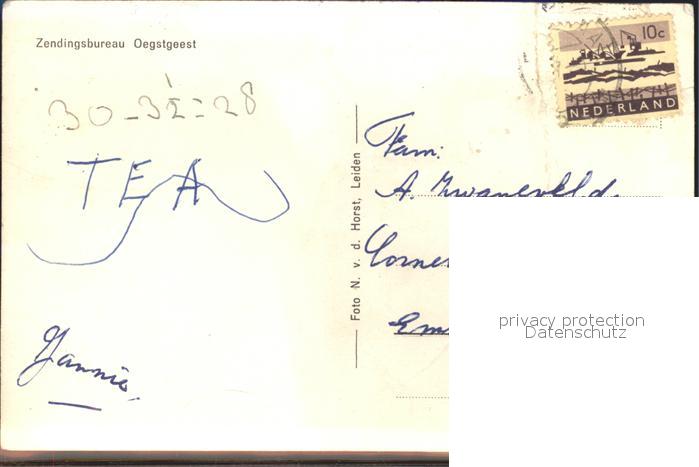 Zendingsbureau Oegstgeest
TEA
Jannie.
Foto N. v. d. Horst, Leiden
10c
NEDERLAND
Fam:
A. Zwaneveld.
privacy protection
Datenschutz